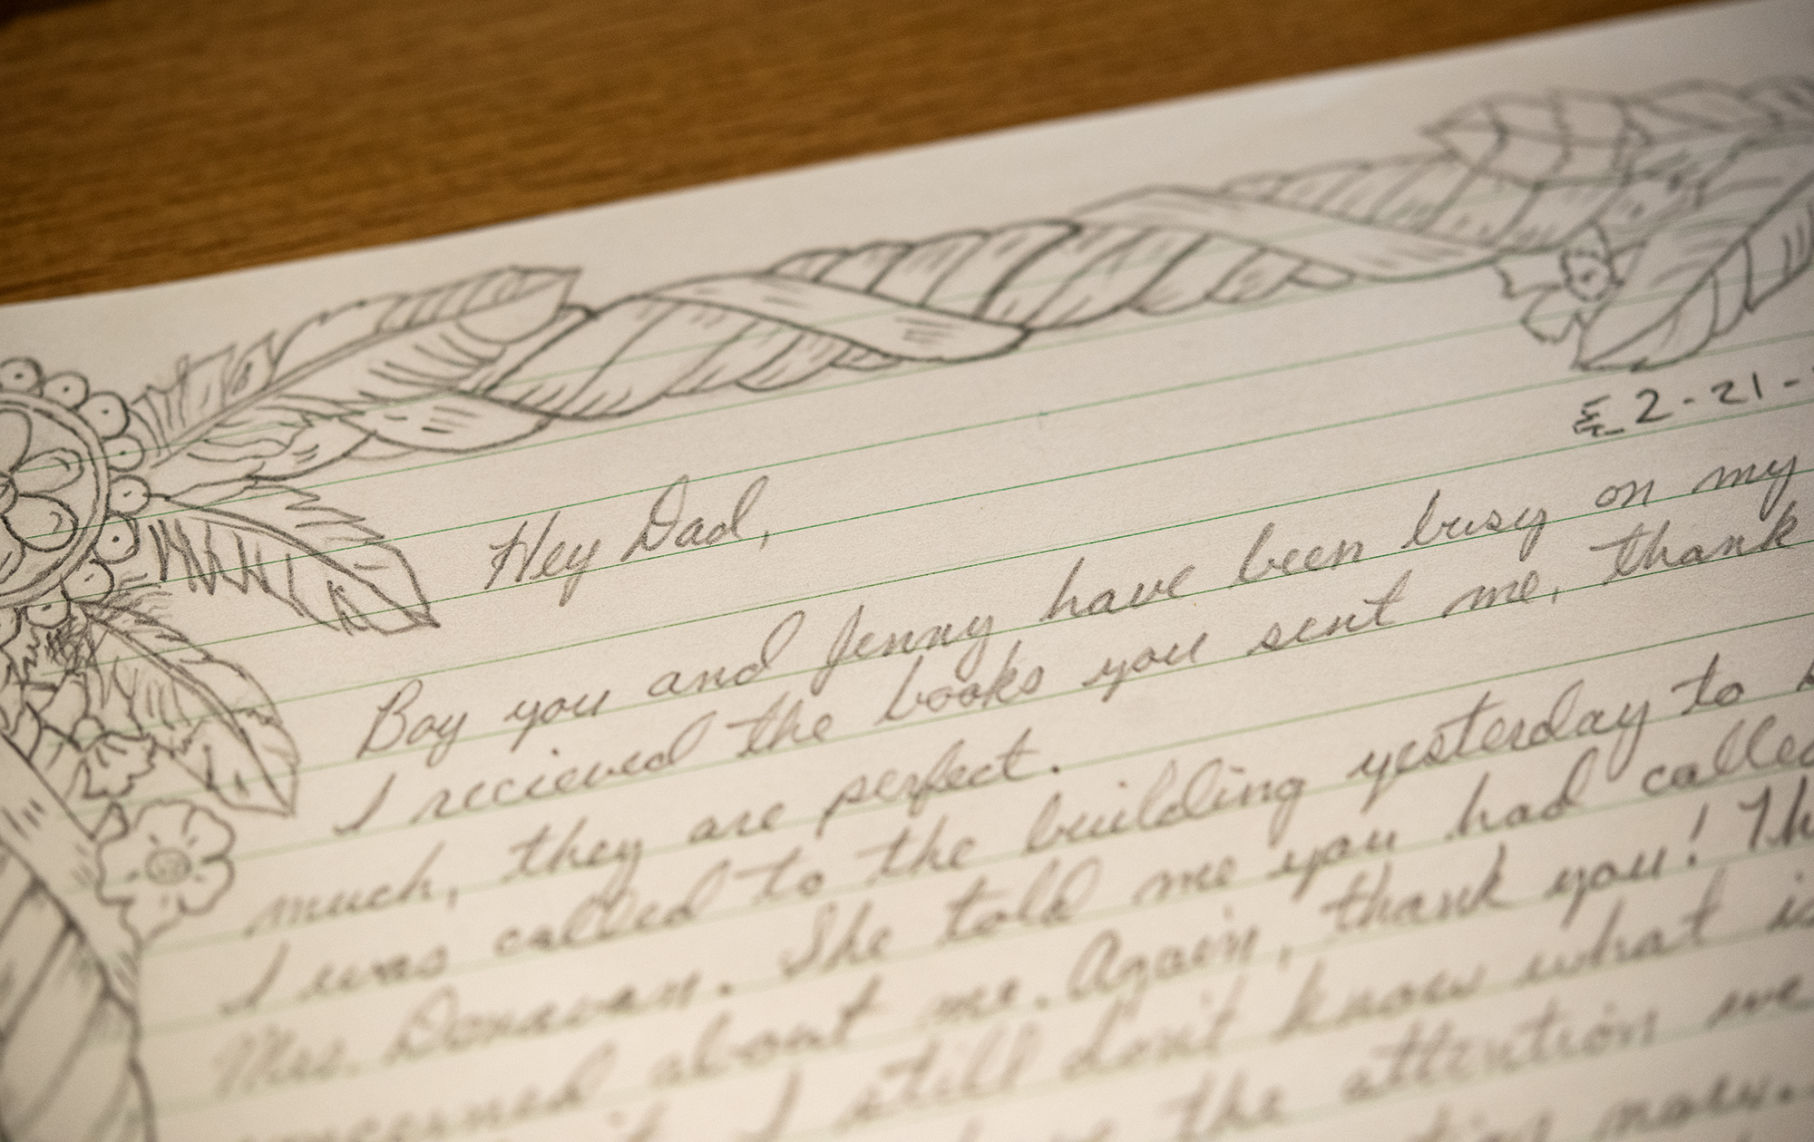 2-21-
Hey Dad,
Boy you and Jenny have been busy on my
I recieved the books you sent me, thank
much, they are perfect.
I was called to the building yesterday to
Mrs. Donavan. She told me you had called
concerned about me. Again, thank you! Th
it I still don't know what is
the attention we